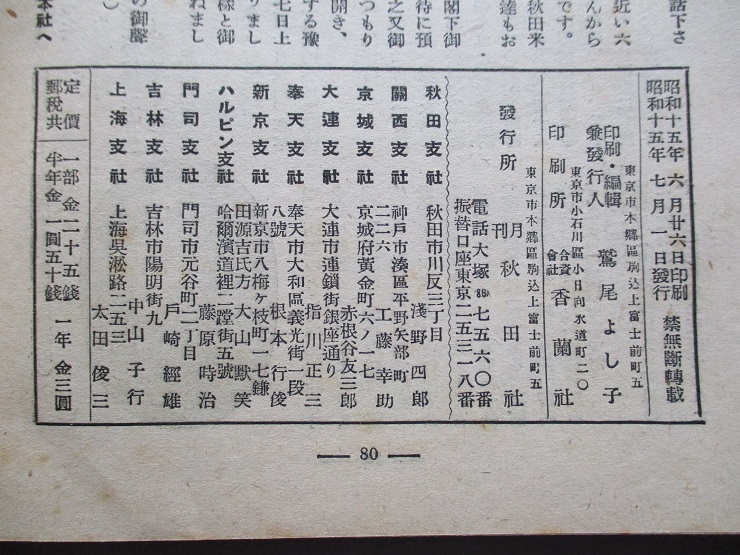 話下さ
近い六
んから
です。
秋田米
達もお
閣下御
待に預
之又御
つもり
開き、
する豫
七日上
りまし
様と御
ねまし
の御聲
）
本社へ
昭和十五年 六月廿六日印刷
昭和十五年 七月一日發行
禁無斷轉載
東京市本鄕區駒込上富士前町五
印刷・編輯
兼發行人 鷲尾よし子
東京市小石川區小日向水道町二〇
印刷所 合資會社 香蘭社
東京市本鄕區駒込上富士前町五
發行所 月刊 秋田社
電話大塚(86)七五六〇番
振替口座東京二五三一八番
秋田支社 秋田市川反三丁目
淺野四郎
關西支社 神戸市湊區平野矢部町
二二六 工藤幸助
京城支社 京城府黃金町六ノ一七
赤根谷友三郎
大連支社 大連市連鎖街銀座通り
指川正三
奉天支社 奉天市大和區義光街一段
八號 根本行俊
新京支社 新京市八梅ヶ枝町一七鎌
田源吉氏方 大山獸笑
ハルピン支社 哈爾濱道裡二蹚街五號
藤原時治
門司支社 門司市元谷町二丁目
戶崎經雄
吉林支社 吉林市陽明街九
中山子行
上海支社 上海吳淞路二五三
太田俊三
定價 一部金二十五錢
郵稅共 半年金一圓五十錢 一年金三圓
— 80 —